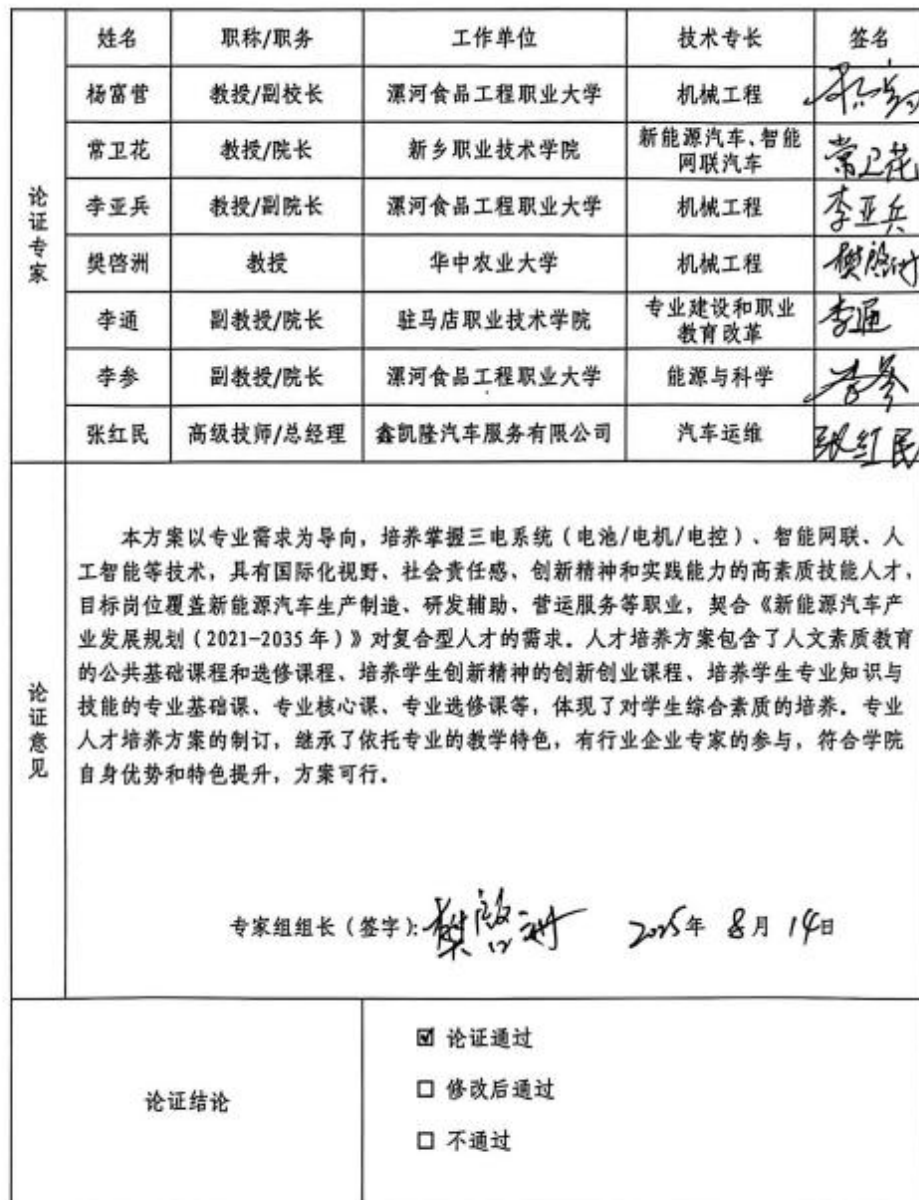 姓名 职称/职务 工作单位 技术专长 签名
杨富营 教授/副校长 漯河食品工程职业大学 机械工程
常卫花 教授/院长 新乡职业技术学院 新能源汽车、智能网联汽车 常卫花
李亚兵 教授/副院长 漯河食品工程职业大学 机械工程 李亚兵
樊啓洲 教授 华中农业大学 机械工程 樊啓洲
李通 副教授/院长 驻马店职业技术学院 专业建设和职业教育改革 李通
李参 副教授/院长 漯河食品工程职业大学 能源与科学 李参
张红民 高级技师/总经理 鑫凯隆汽车服务有限公司 汽车运维 张红民
论证专家
论证意见
本方案以专业需求为导向，培养掌握三电系统（电池/电机/电控）、智能网联、人
工智能等技术，具有国际化视野、社会责任感、创新精神和实践能力的高素质技能人才，
目标岗位覆盖新能源汽车生产制造、研发辅助、营运服务等职业，契合《新能源汽车产
业发展规划（2021-2035年）》对复合型人才的需求。人才培养方案包含了人文素质教育
的公共基础课程和选修课程、培养学生创新精神的创新创业课程、培养学生专业知识与
技能的专业基础课、专业核心课、专业选修课等，体现了对学生综合素质的培养。专业
人才培养方案的制订，继承了依托专业的教学特色，有行业企业专家的参与，符合学院
自身优势和特色提升，方案可行。
专家组组长（签字）：樊啓洲 2025年 8月 14日
论证结论
☑ 论证通过
□ 修改后通过
□ 不通过